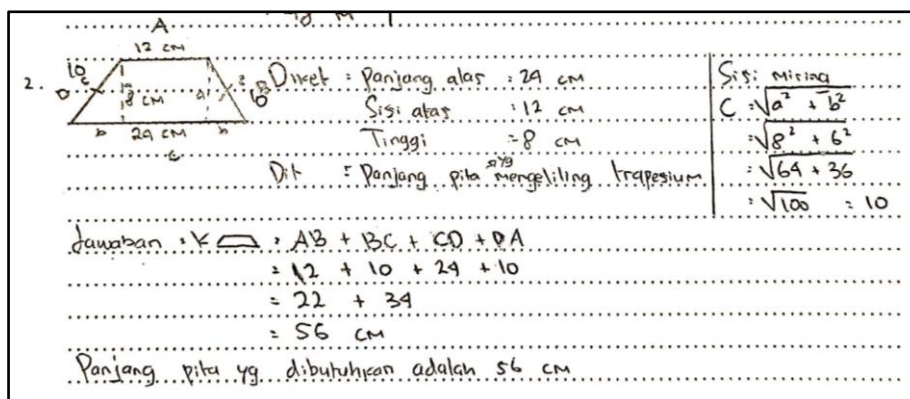 A
12 cm
2.
10
c
c
10
D
B
8 cm
a
b
24 cm
b
c
Diket : Panjang alas : 24 cm
Sisi atas : 12 cm
Tinggi = 8 cm
Dit : Panjang pita yg mengeliling trapesium
Sisi Miring
C = √a² + b²
= √8² + 6²
= √64 + 36
= √100 = 10
Jawaban : K : AB + BC + CD + DA
= 12 + 10 + 24 + 10
= 22 + 34
= 56 cm
Panjang pita yg dibutuhkan adalah 56 cm